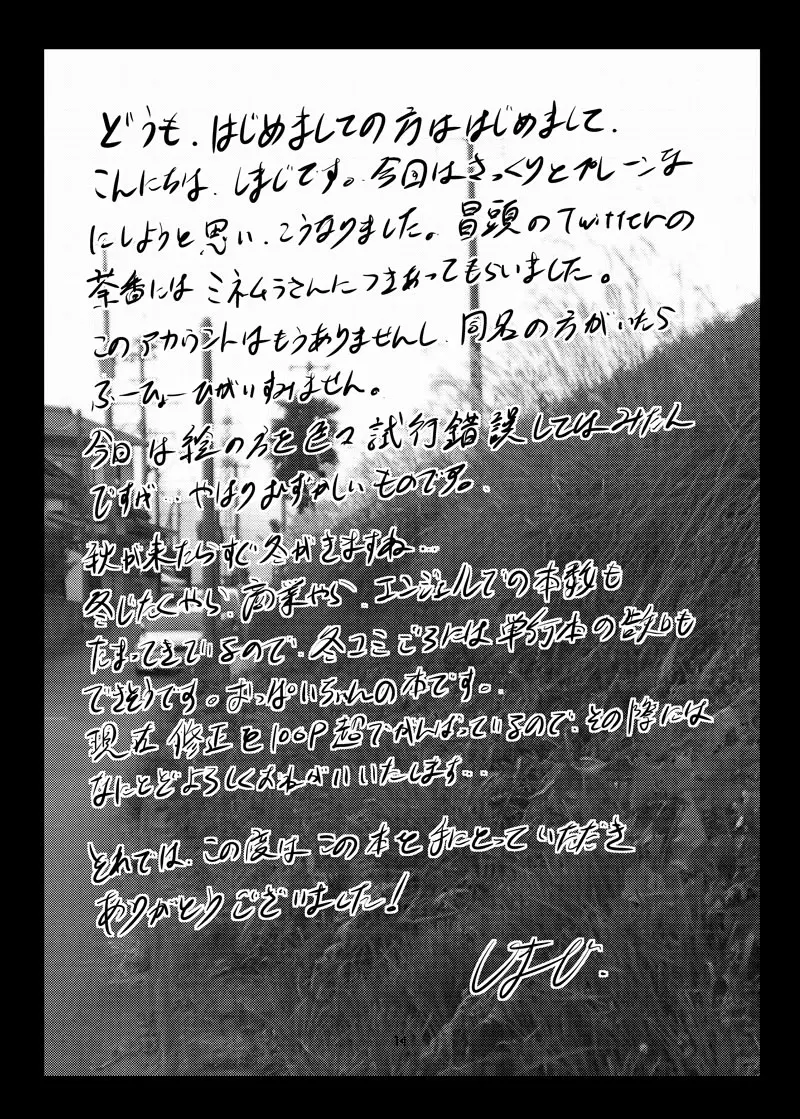 どうも、はじめましての方ははじめまして、
こんにちは、しまじです。今回はさっくりとプレーンな
にしようと思い、こうなりました。冒頭のTwitterの
茶番にはミネムラさんにつきあってもらいました。
このアカウントはもうありませんし、同名の方がいたら
ふーひょーひがいすみません。
今回は絵の方を色々試行錯誤してはみたん
ですが…やはりむずかしいものです。
秋が来たらすぐ冬がきますね…
冬じたくやら、商業やら、エンジェルでの本数も
たまってきているので、冬コミごろには単行本の告知も
できそうです。おっぱいちゃんの本です。
現在修正を100P超でがんばっているので、その際には
なにとぞよろしくおねがいいたします…
それでは、この度はこの本を手にとっていただき
ありがとうございました!
14